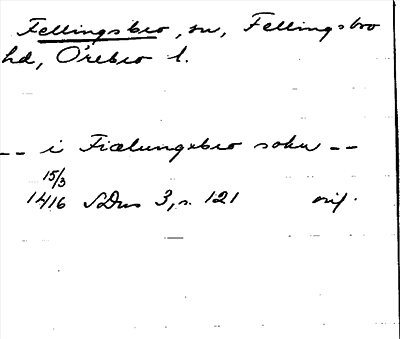 Fellingsbro, sn, Fellingsbro
hd, Örebro l.
-- i Fiælungxbro sokn --
15/3
1416 SDns 3, s. 121 orig.